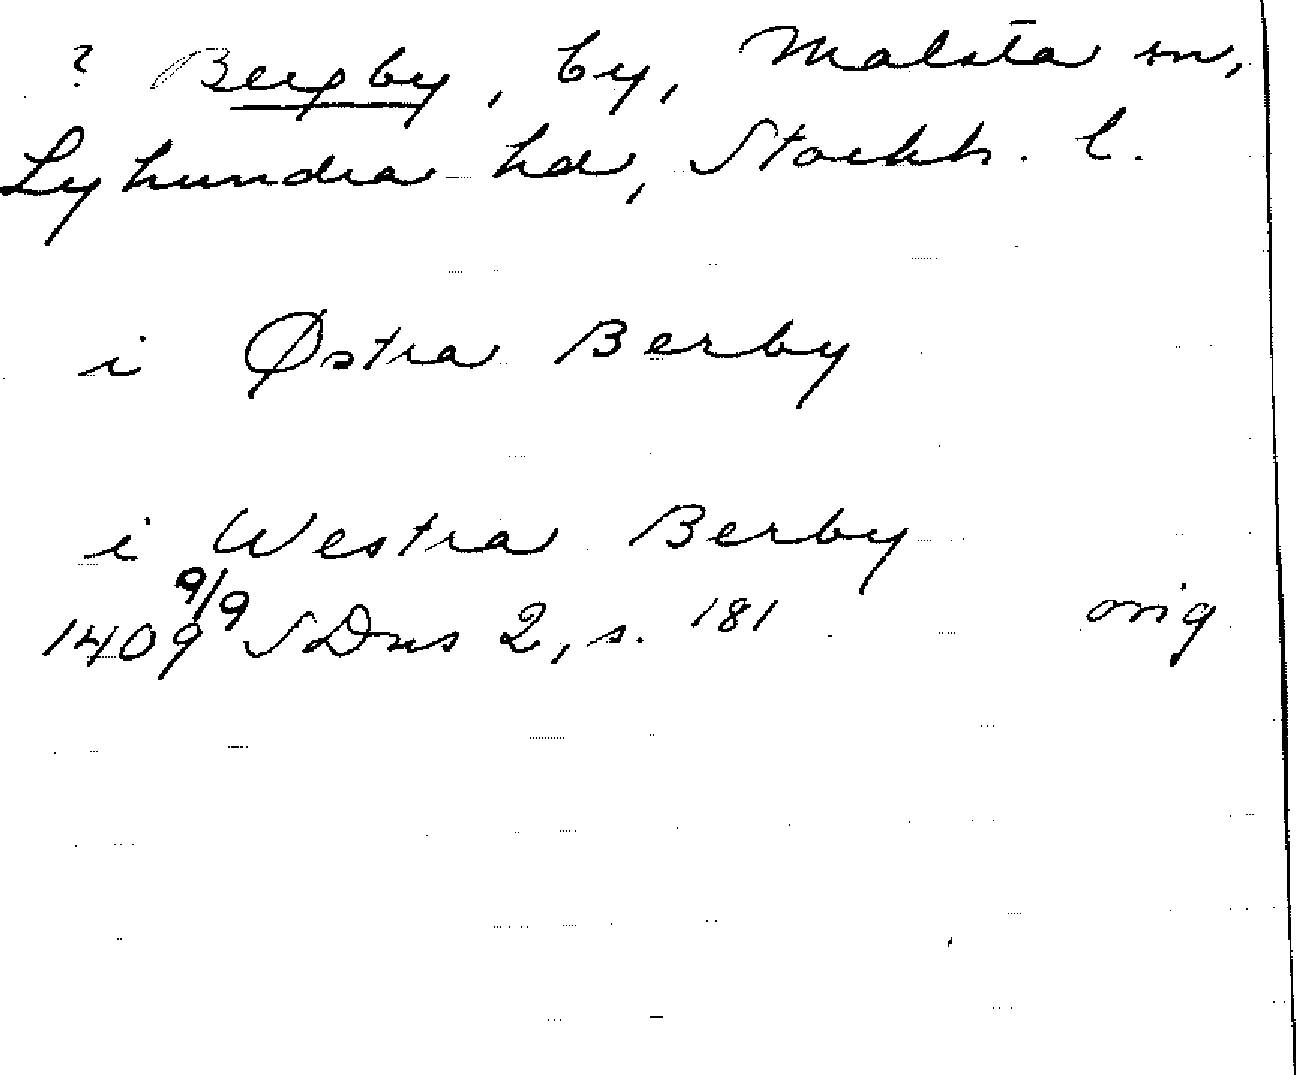 ? Bergby, by, Malsta sn,
Lyhundra hd, Stockh. l.
i Østra Berby
i Westra Berby
1409 9/9 SDns 2, s. 181 orig